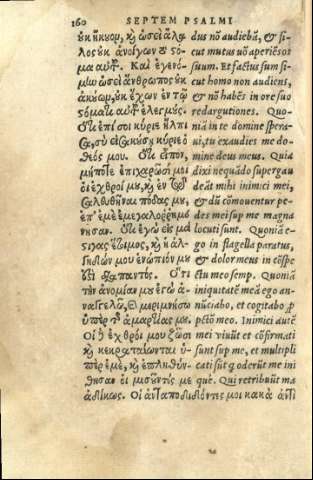 160 SEPTEM PSALMI
ουκ ἤκουομ, καὶ ὡσεὶ ἄλα
λος οὐκ ἀνοίγων τὸ στό
μα αὐτοῦ. Καὶ ἐγενό
μην ὡσεὶ ἄνθρωπος οὐκ
ἀκούωμ, καὶ οὐκ ἔχων ἐν τῷ
στόματι αὐτοῦ ἐλεγμούς.
Ὅτι ἐπὶ σοὶ κύριε ἤλπι
σα, σὺ εἰσακούσῃ κύριε ὁ
θεός μου. Ὅτι εἶπον,
μήποτε ἐπιχαρῶσί μοι
οἱ ἐχθροί μου, καὶ ἐν τῷ
σαλευθῆναι πόδας μου,
ἐπ' ἐμὲ ἐμεγαλορρημό
νησαν. Ὅτι ἐγὼ εἰς μά
στιγας ἕτοιμος, καὶ ἡ ἀλ-
γηδών μου ἐνώπιόν μου
ἐστὶ διαπαντός. Ὅτι
τὴν ἀνομίαν μου ἐγὼ ἀ-
ναγγελῶ, καὶ μεριμνήσω
ὑπὲρ τῆς ἁμαρτίας μου.
Οἱ δὲ ἐχθροί μου ζῶσι
καὶ κεκραταίωνται ὑ-
πὲρ ἐμὲ, καὶ ἐπληθύν-
θησαν οἱ μισοῦντές με
ἀδίκως. Οἱ ἀνταποδιδόντες μοι κακὰ ἀντὶ
dus nō audiebā, & si-
cut mutus uō aperiēs os
suum. Et factus sum si-
cut homo non audiens,
& nō habēs in ore suo
redargutiones. Quo-
niā in te domine spera-
ui, tu exaudies me do-
mine deus meus. Quia
dixi nequādo supergau
deāt mihi inimici mei,
& dū cōmouentur pe-
des mei sup me magna
locuti sunt. Quoniā e-
go in flagella paratus,
& dolor meus in cōspe-
ctu meo semp. Quoniā
iniquitatē meā ego an-
nūciabo, et cogitabo ꝓ
pctō meo. Inimici autē
mei viuūt et cōfirmati
sunt sup me, et multipli
cati sūt q̄ oderūt me ini
què. Qui retribuūt ma